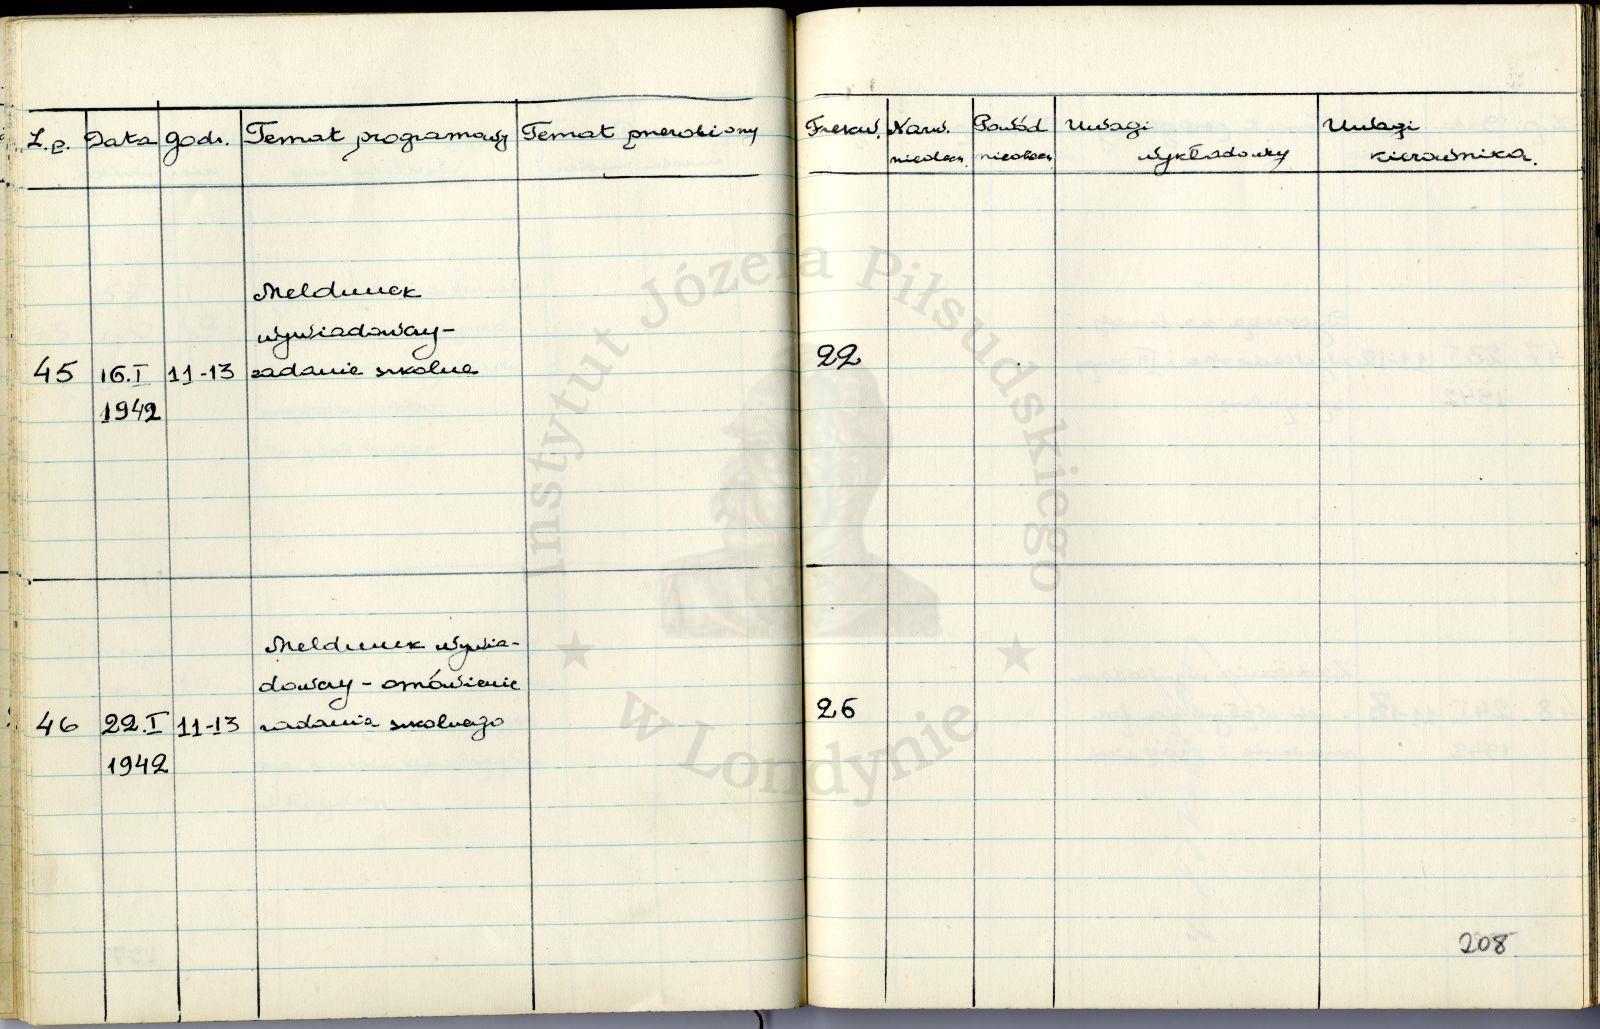 L.p. Data godz. Temat programowy Temat przerobiony Frekw. Nazw. Powód Uwagi Uwagi
nieobecn. nieobecn. wykładowcy kierownika.
Meldunek
wywiadowczy-
45 16.I 11-13 zadanie szkolne 22
1942
Meldunek wywia-
dowczy - omówienie
46 22.I 11-13 zadania szkolnego 26
1942
208
Instytut Józefa Piłsudskiego
w Londynie